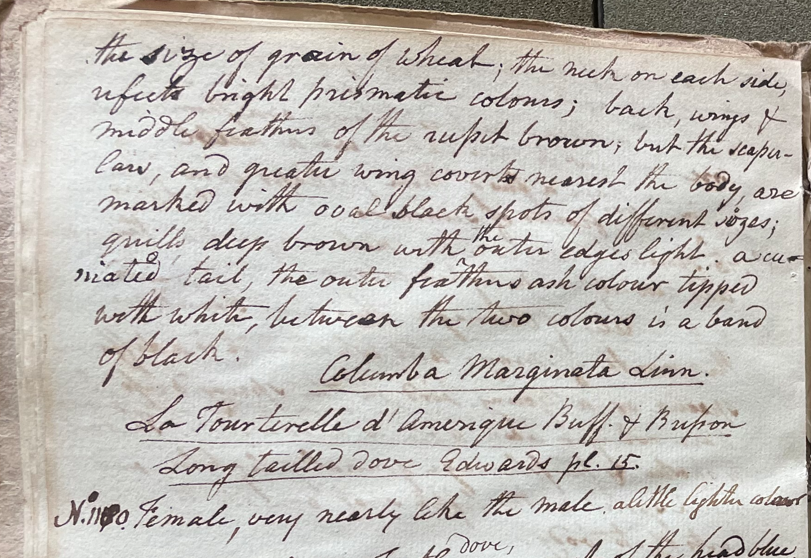 the size of grain of wheat; the neck on each side,
reflects bright prismatic colours; back, wings &
middle feathers of the rupet brown; but the scaper-
lars, and greater wing coverts nearest the body, are
marked with oval black spots of different sizes;
quills deep brown with the outer edges light. a cu-
niated tail, the outer feathers ash colour tipped
with white, between the two colours is a band
of black.
Columba Marginata Linn.
La Tourterelle d'Amerique Buff. & Briſson
Long tailled dove Edwards pl. 15.
Female, very nearly like the male. a little lighter colour
dove,
of the head blue